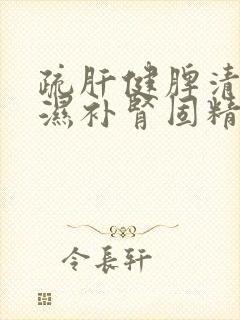 疏肝健脾清
濕补腎固精
令長轩